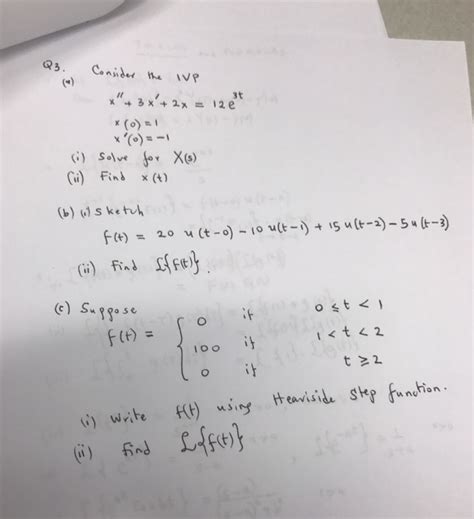 Q3.
(a) Consider the IVP
x'' + 3x' + 2x = 12e^3t
x(0) = 1
x'(0) = -1
(i) Solve for X(s)
(ii) Find x(t)
(b) (i) Sketch
f(t) = 20 u(t-0) - 10 u(t-1) + 15 u(t-2) - 5 u(t-3)
(ii) Find ℒ{f(t)}.
(c) Suppose
f(t) = { 0 if 0 ≤ t < 1
100 if 1 < t < 2
0 if t ≥ 2
(i) Write f(t) using Heaviside Step function.
(ii) Find ℒ{f(t)}